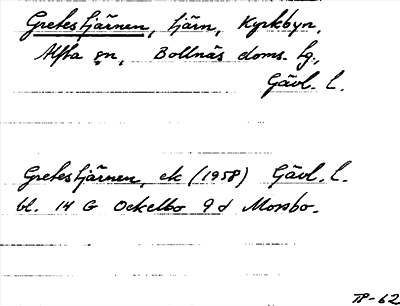 Gretestjärnen, tjärn, Kyrkbyn,
Alfta sn, Bollnäs doms. tg.,
Gävl. l.
Gretestjärnen, ek (1958) Gävl. l.
bl. 14 G Ockelbo 9 d Mossbo.
TP-62